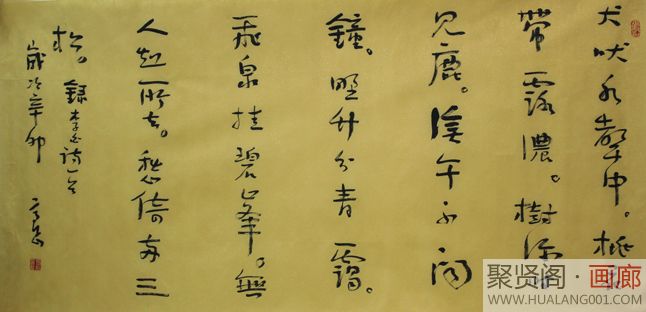 犬吠水聲中。桃花
帶露濃。樹深時
見鹿。溪午不聞
鐘。野竹分青靄。
飛泉挂碧峯。無
人知所去。愁倚兩三
松。錄李白詩一首
歲次辛卯
聚贤阁·画廊
WWW.HUALANG001.COM